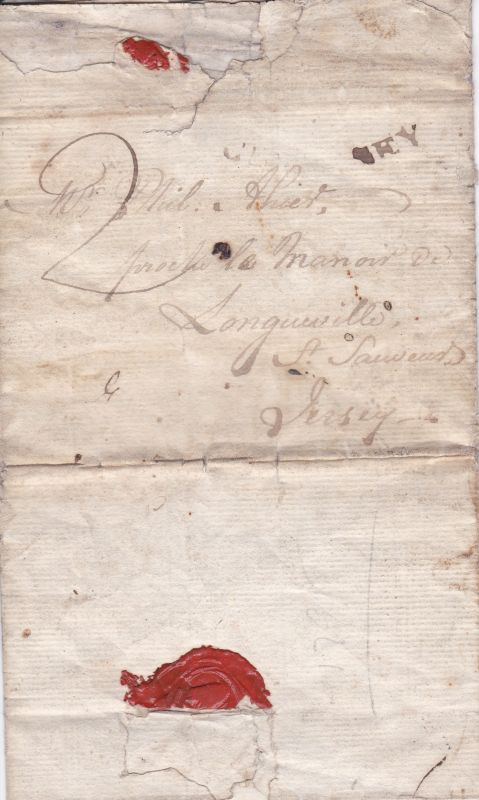 EY
2
Mr. Phil.
proche le Manoir de
Longueville,
St. Sauveur,
Jersey